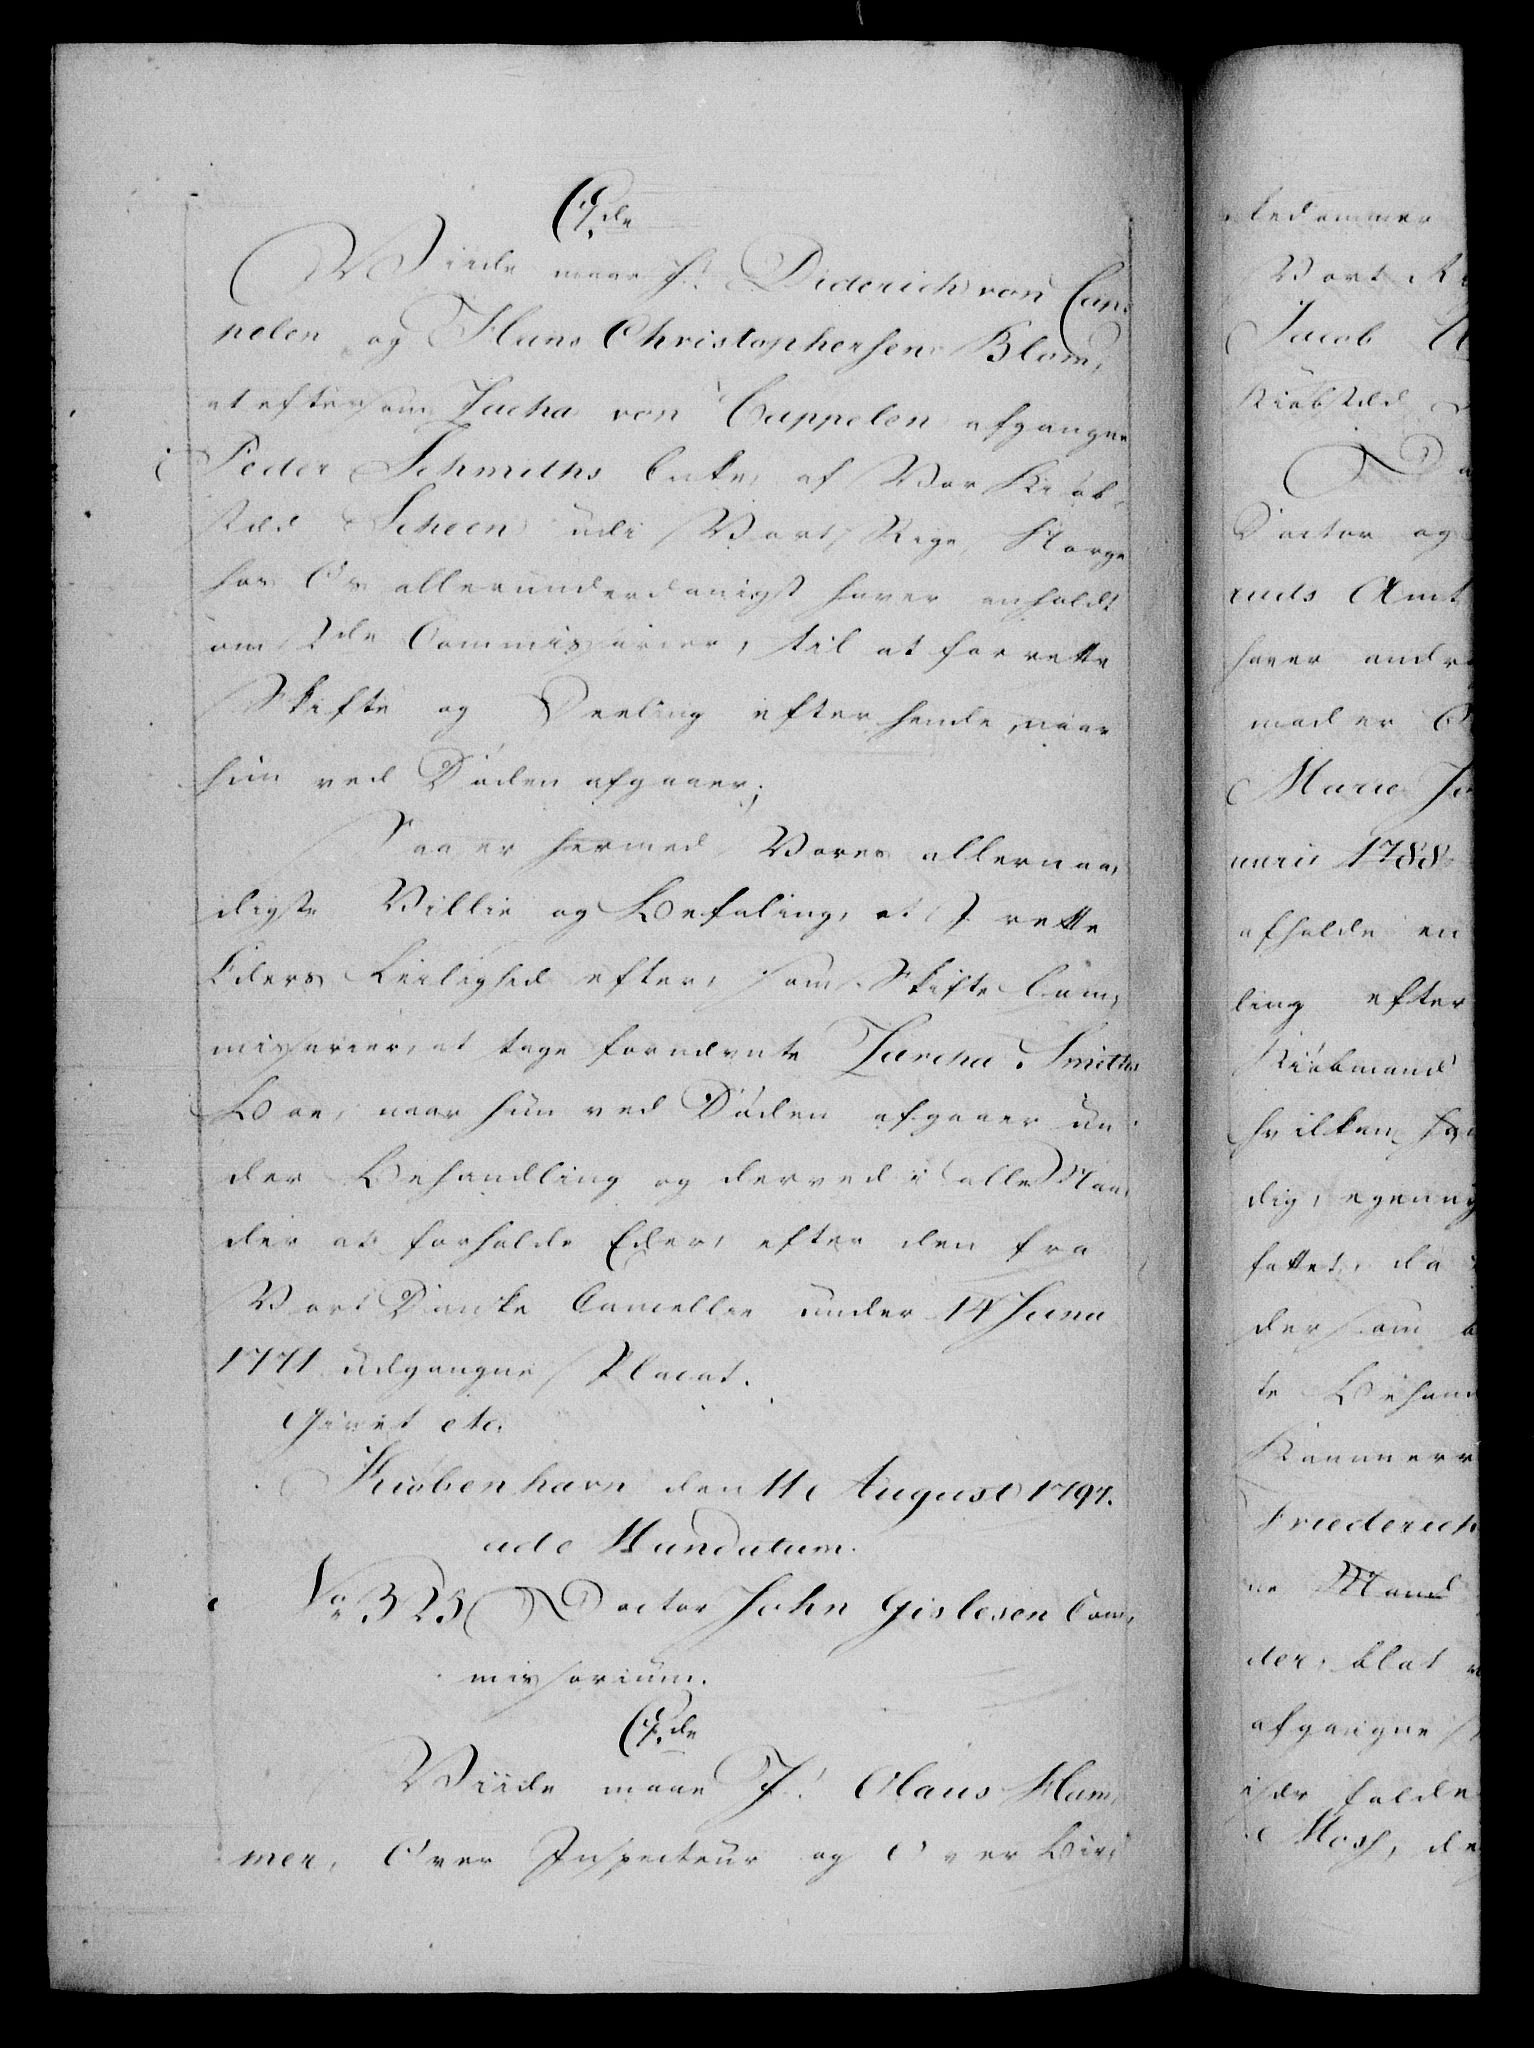 C7de
Viide maae I. Diderich von Cap-
pelen og Hans Christophersen Blom,
at eftersom Zucha von Cappelen afgangne
Peder Schmiths Enke, af Vor Kiøb-
stæd Scheen udi Vort Rige Norge
hos Os allerunderdanigst haver anholdt
om 2de Commissarier, til at forrette
Skifte og Deeling efter hende, naar
hun ved Døden afgaaer;
Saa er hermed Vores allernaa-
digste Villie og Befaling, at I rette
Eders Leilighed efter, som Skifte Com-
missarier, at tage forneunte Zarcha Smiths
Boe, naar hun ved Døden afgaaer un-
der Behandling og derved i alle Maa-
der at forholde Eder, efter den fra
Vort Danske Cancellie under 14 Junii
1771 udgangne Placat.
Givet etc.
Kiøbenhavn den 11 August 1797.
ad Mandatum.
No 325 Doctor John Gislesen Com-
missorium.
C7de
Viide maae I. Olaus Ham-
mer, Over Inspecteur og Over Bir-
kedommer
Vort R
Jacob
Kiøbstæd
Da
Doctor og
ruds Amt
haver andr
mod er
Marie
nuarii 1788
afholde en
ling efter
Kiøbmand
hvilken
dig, egenny
fattet, da
dersom
te Behan
Kammerr
Friederich
ne Mand
der, blot
afgangne
især holde
Moss, de